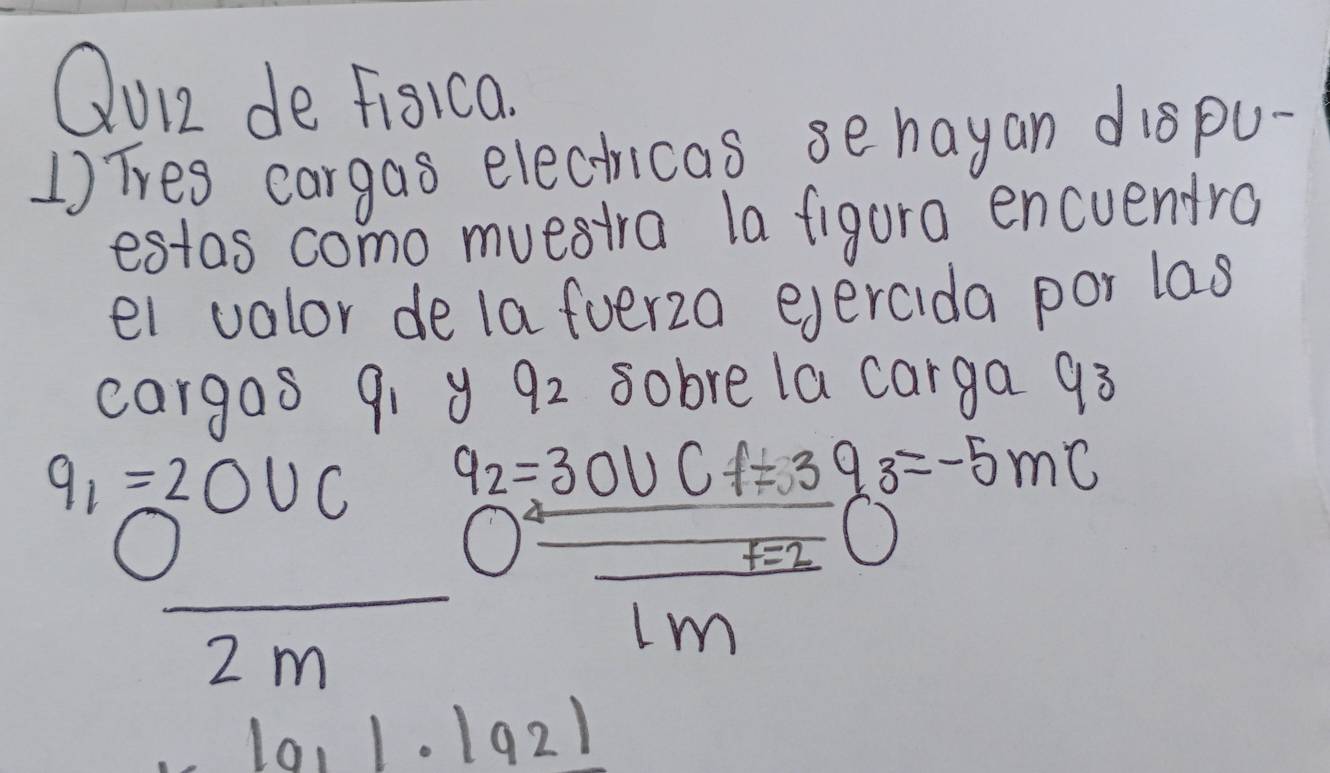 Quiz de Fisica.
1) Tres cargas electricas se hayan dispu-
estas como muestra la figura encuentra
el valor de la fuerza ejercida por las
cargas q1 y q2 sobre la carga q3
q1 = 20UC q2=30UC f=3 q3=-5mC
f=2
2m 1m
|q1| . |q2|